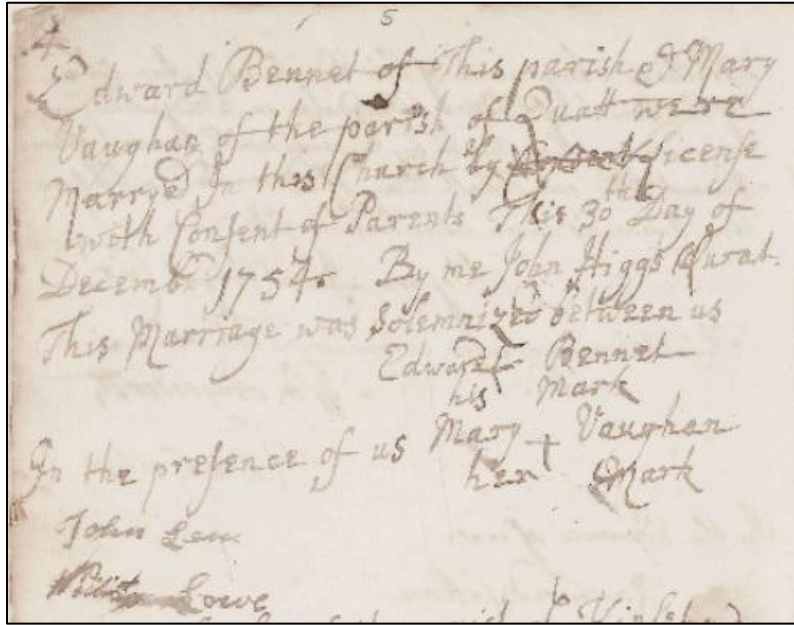 5
4
Edward Bennet of This parish & Mary
Vaughan of the parish of Quatt were
Marryed In this Church by License
with Consent of Parents This 30th Day of
Decembr 1754. By me John Higgs Curat.
This Marriage was Solemnized between us
Edward Bennet
his Mark
Mary + Vaughan
In the presence of us
her Mark
John
Lowe